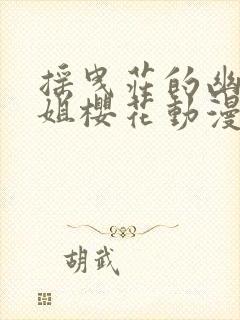 採曳莊的幽
姐櫻花動漫
胡武